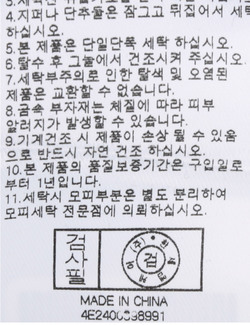 4.지퍼나 단추물은 잠그고 뒤집어서 세탁
하십시오.
5.본 제품은 단일단독 세탁 하십시오.
6.탈수 후 그늘에서 건조시켜 주십시오.
7.세탁부주의로 인한 탈색 및 오염된
제품은 교환할 수 없습니다.
8.금속 부자재는 체질에 따라 피부
알러지가 발생할 수 있습니다.
9.기계건조 시 제품이 손상 될 수 있음
으로 반드시 자연 건조 하십시오.
10.본 제품의 품질보증기간은 구입일로
부터 1년입니다.
11.세탁시 모피부분은 별도 분리하여
모피세탁 전문점에 의뢰하십시오.
검사필
검
(주)
MADE IN CHINA